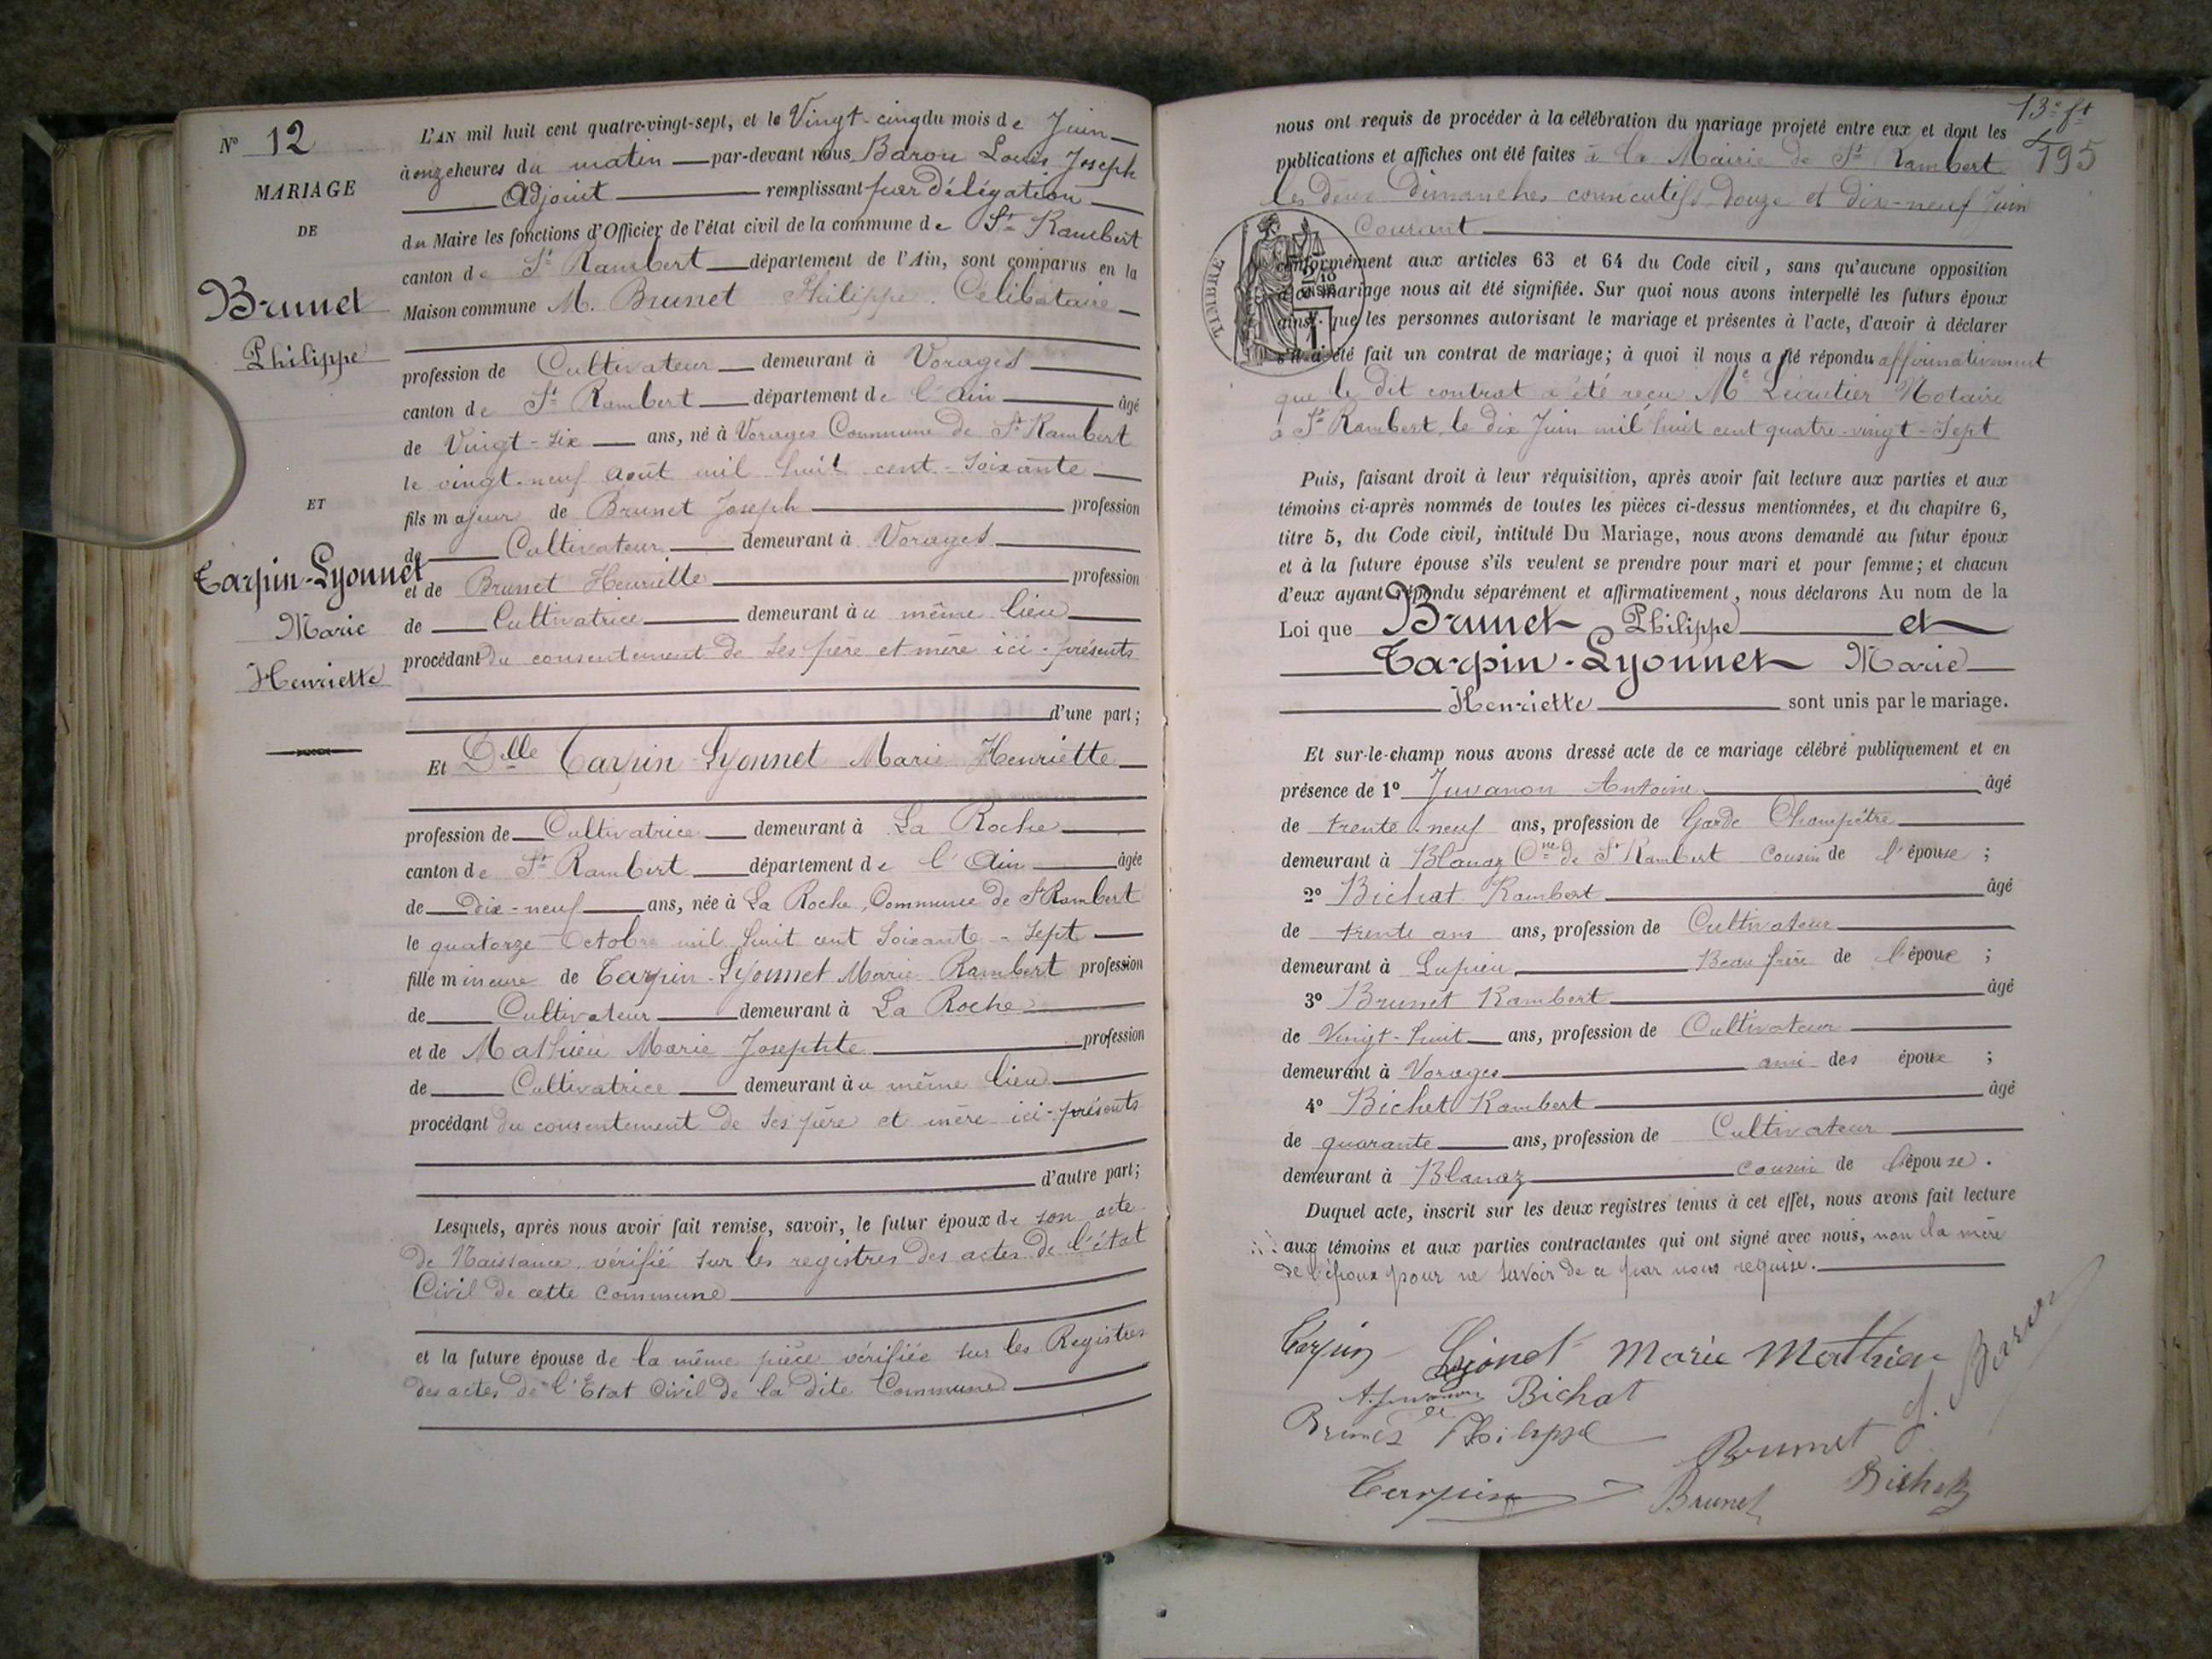 N° 12
MARIAGE
DE
Brunet
Philippe
ET
Tarpin-Lyonnet
Marie
Henriette
L'AN mil huit cent quatre-vingt-sept, et le Vingt-cinq du mois de Juin
à onze heures du matin par-devant nous Barou Louis Joseph
Adjoint remplissant par délégation
du Maire les fonctions d'Officier de l'état civil de la commune de St Rambert
canton de St Rambert département de l'Ain, sont comparus en la
Maison commune M. Brunet Philippe. Célibataire
profession de Cultivateur demeurant à Vorages
canton de St Rambert département de l'Ain âgé
de Vingt-six ans, né à Vorages Commune de St Rambert
le vingt-neuf Août mil huit cent-soixante
fils majeur de Brunet Joseph profession
de Cultivateur demeurant à Vorages
et de Brunet Henriette profession
de Cultivatrice demeurant au même lieu
procédant du consentement de ses père et mère ici-présents
d'une part;
Et Delle Tarpin-Lyonnet Marie Henriette
profession de Cultivatrice demeurant à La Roche
canton de St Rambert département de l'Ain âgée
de dix-neuf ans, née à La Roche, Commune de St Rambert
le quatorze Octobre mil huit cent soixante-sept
fille mineure de Tarpin-Lyonnet Marie Rambert profession
de Cultivateur demeurant à La Roche
et de Mathieu Marie Josephte profession
de Cultivatrice demeurant au même lieu
procédant du consentement de ses père et mère ici-présents
d'autre part;
Lesquels, après nous avoir fait remise, savoir, le futur époux de son acte
de Naissance, vérifié sur les registres des actes de l'état
Civil de cette commune
et la future épouse de la même pièce vérifiée sur les Registres
des actes de l'Etat Civil de la dite Commune
13e ft
195
nous ont requis de procéder à la célébration du mariage projeté entre eux et dont les
publications et affiches ont été faites à la Mairie de St Rambert
les deux Dimanches consécutifs, douze et dix-neuf Juin
Courant
TIMBRE
conformément aux articles 63 et 64 du Code civil, sans qu'aucune opposition
à ce mariage nous ait été signifiée. Sur quoi nous avons interpellé les futurs époux
ainsi que les personnes autorisant le mariage et présentes à l'acte, d'avoir à déclarer
s'il a été fait un contrat de mariage; à quoi il nous a été répondu affirmativement
que le dit contrat a été reçu Me Léautier Notaire
à St Rambert, le dix Juin mil huit cent quatre-vingt-sept
Puis, faisant droit à leur réquisition, après avoir fait lecture aux parties et aux
témoins ci-après nommés de toutes les pièces ci-dessus mentionnées, et du chapitre 6,
titre 5, du Code civil, intitulé Du Mariage, nous avons demandé au futur époux
et à la future épouse s'ils veulent se prendre pour mari et pour femme; et chacun
d'eux ayant répondu séparément et affirmativement, nous déclarons Au nom de la
Loi que Brunet Philippe et
Tarpin-Lyonnet Marie
Henriette sont unis par le mariage.
Et sur-le-champ nous avons dressé acte de ce mariage célébré publiquement et en
présence de 1° Juvanon Antoine âgé
de trente-neuf ans, profession de Garde Champêtre
demeurant à Blanaz Cne de St Rambert cousin de l'épouse ;
2° Bichat Rambert âgé
de trente ans ans, profession de Cultivateur
demeurant à Lupieu Beau frère de l'époux ;
3° Brunet Rambert âgé
de Vingt-huit ans, profession de Cultivateur
demeurant à Vorages ami des époux ;
4° Bichet Rambert âgé
de quarante ans, profession de Cultivateur
demeurant à Blanaz cousin de l'épouse.
Duquel acte, inscrit sur les deux registres tenus à cet effet, nous avons fait lecture
aux témoins et aux parties contractantes qui ont signé avec nous, non la mère
de l'époux pour ne savoir de ce par nous requise.
Tarpin Lyonet Marie Mathieu
A. Juvanon Bichat
Brunet Philippe
Brunet J. Barou
Tarpin Brunet Bichet